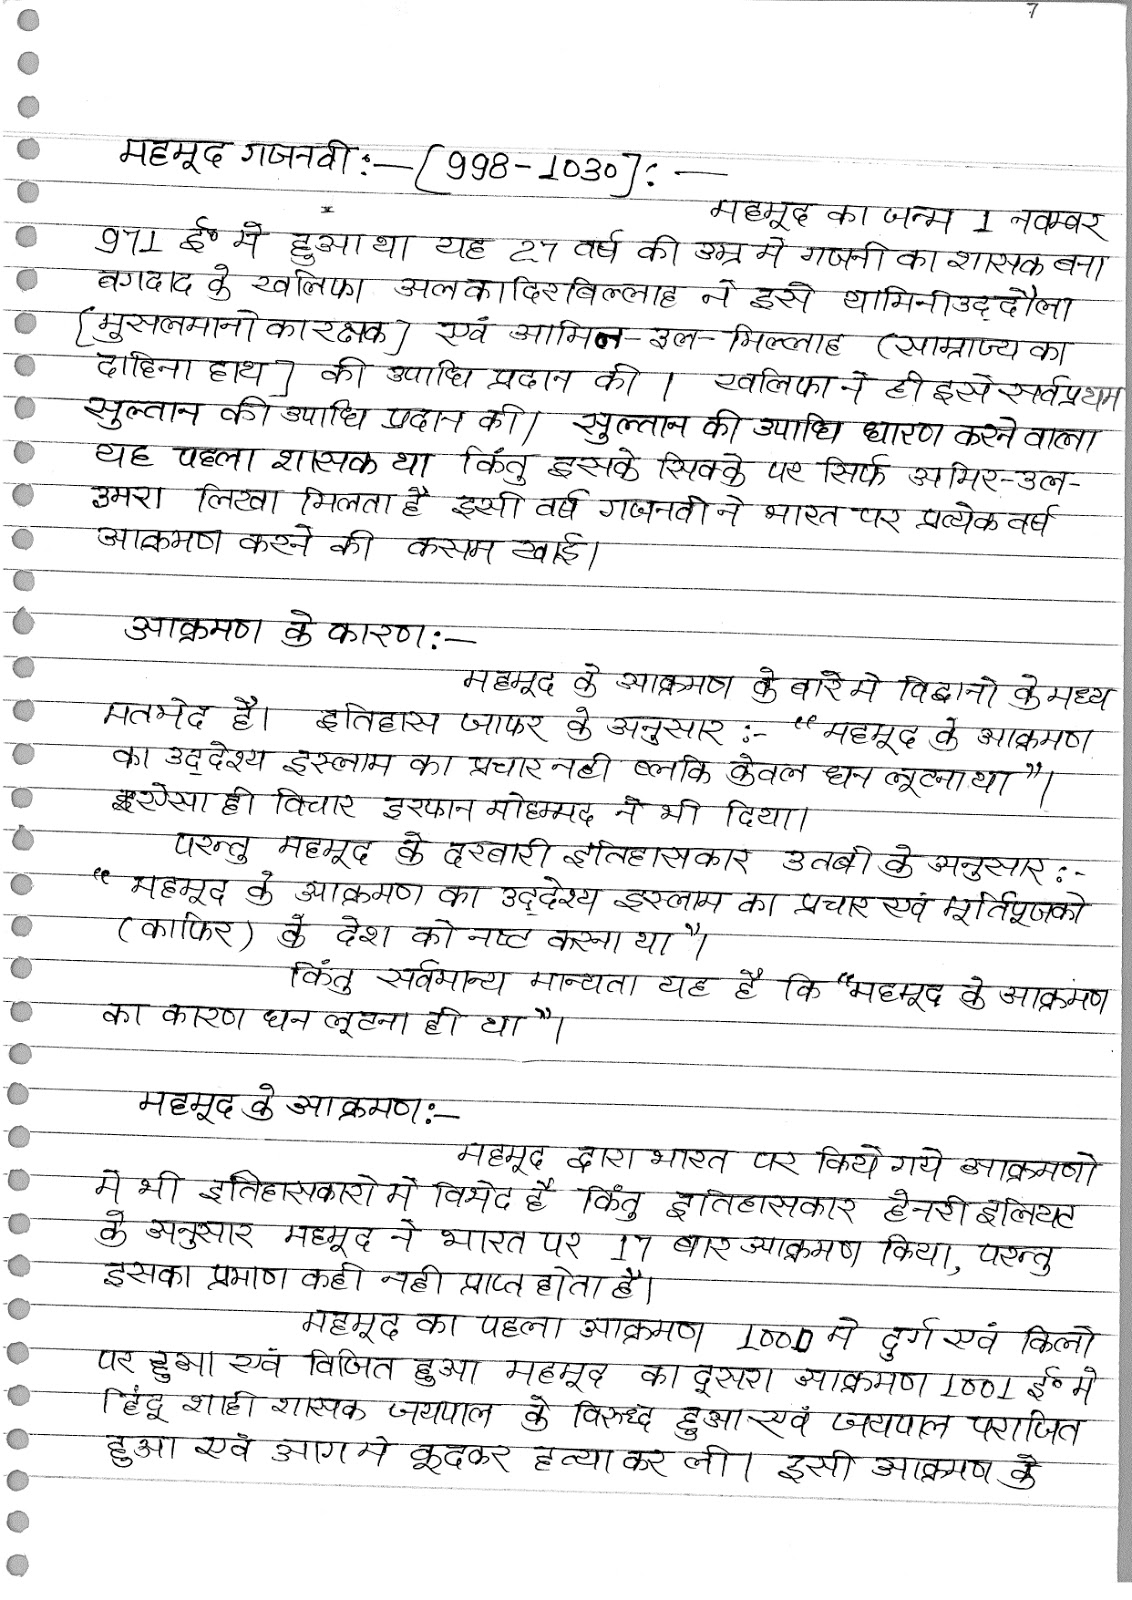 7
महमूद गजनवी :— [998-1030] : —
महमूद का जन्म 1 नवम्बर
971 ई० मे हुआ था यह 27 वर्ष की उम्र मे गजनी का शासक बना
बगदाद के खलिफा अलकादिरबिल्लाह ने इसे यामिनीउद्दौला
[मुसलमानो का रक्षक] एवं आमिन-उल-मिल्लाह (साम्राज्य का
दाहिना हाथ] की उपाधि प्रदान की । खलिफा ने ही इसे सर्वप्रथम
सुल्तान की उपाधि प्रदान की। सुल्तान की उपाधि धारण करने वाला
यह पहला शासक था किंतु इसके सिक्के पर सिर्फ अमिर-उल-
उमरा लिखा मिलता है इसी वर्ष गजनवी ने भारत पर प्रत्येक वर्ष
आक्रमण करने की कसम खाई।
आक्रमण के कारण :—
महमूद के आक्रमण के बारे मे विद्वानो के मध्य
मतभेद है। इतिहास जाफर के अनुसार :- “महमूद के आक्रमण
का उद्देश्य इस्लाम का प्रचार नही ब्लकि केवल धन लूटना था”।
ऐसा ही विचार इरफान मोहम्मद ने भी दिया।
परन्तु महमूद के दरबारी इतिहासकार उतबी के अनुसार :-
“महमूद के आक्रमण का उद्देश्य इस्लाम का प्रचार एवं मूर्तिपूजको
(काफिर) के देश को नष्ट करना था”।
किंतु सर्वमान्य मान्यता यह है कि “महमूद के आक्रमण
का कारण धन लूटना ही था”।
महमूद के आक्रमण :—
महमूद द्वारा भारत पर किये गये आक्रमणो
मे भी इतिहासकारो मे विभेद है किंतु इतिहासकार हेनरी इलियट
के अनुसार महमूद ने भारत पर 17 बार आक्रमण किया, परन्तु
इसका प्रमाण कही नही प्राप्त होता है।
महमूद का पहला आक्रमण 1000 मे दुर्ग एवं किलो
पर हुआ एवं विजित हुआ महमूद का दूसरा आक्रमण 1001 ई० मे
हिंदू शाही शासक जयपाल के विरुध्द हुआ एवं जयपाल पराजित
हुआ एवं आग मे कूदकर हत्या कर ली। इसी आक्रमण के